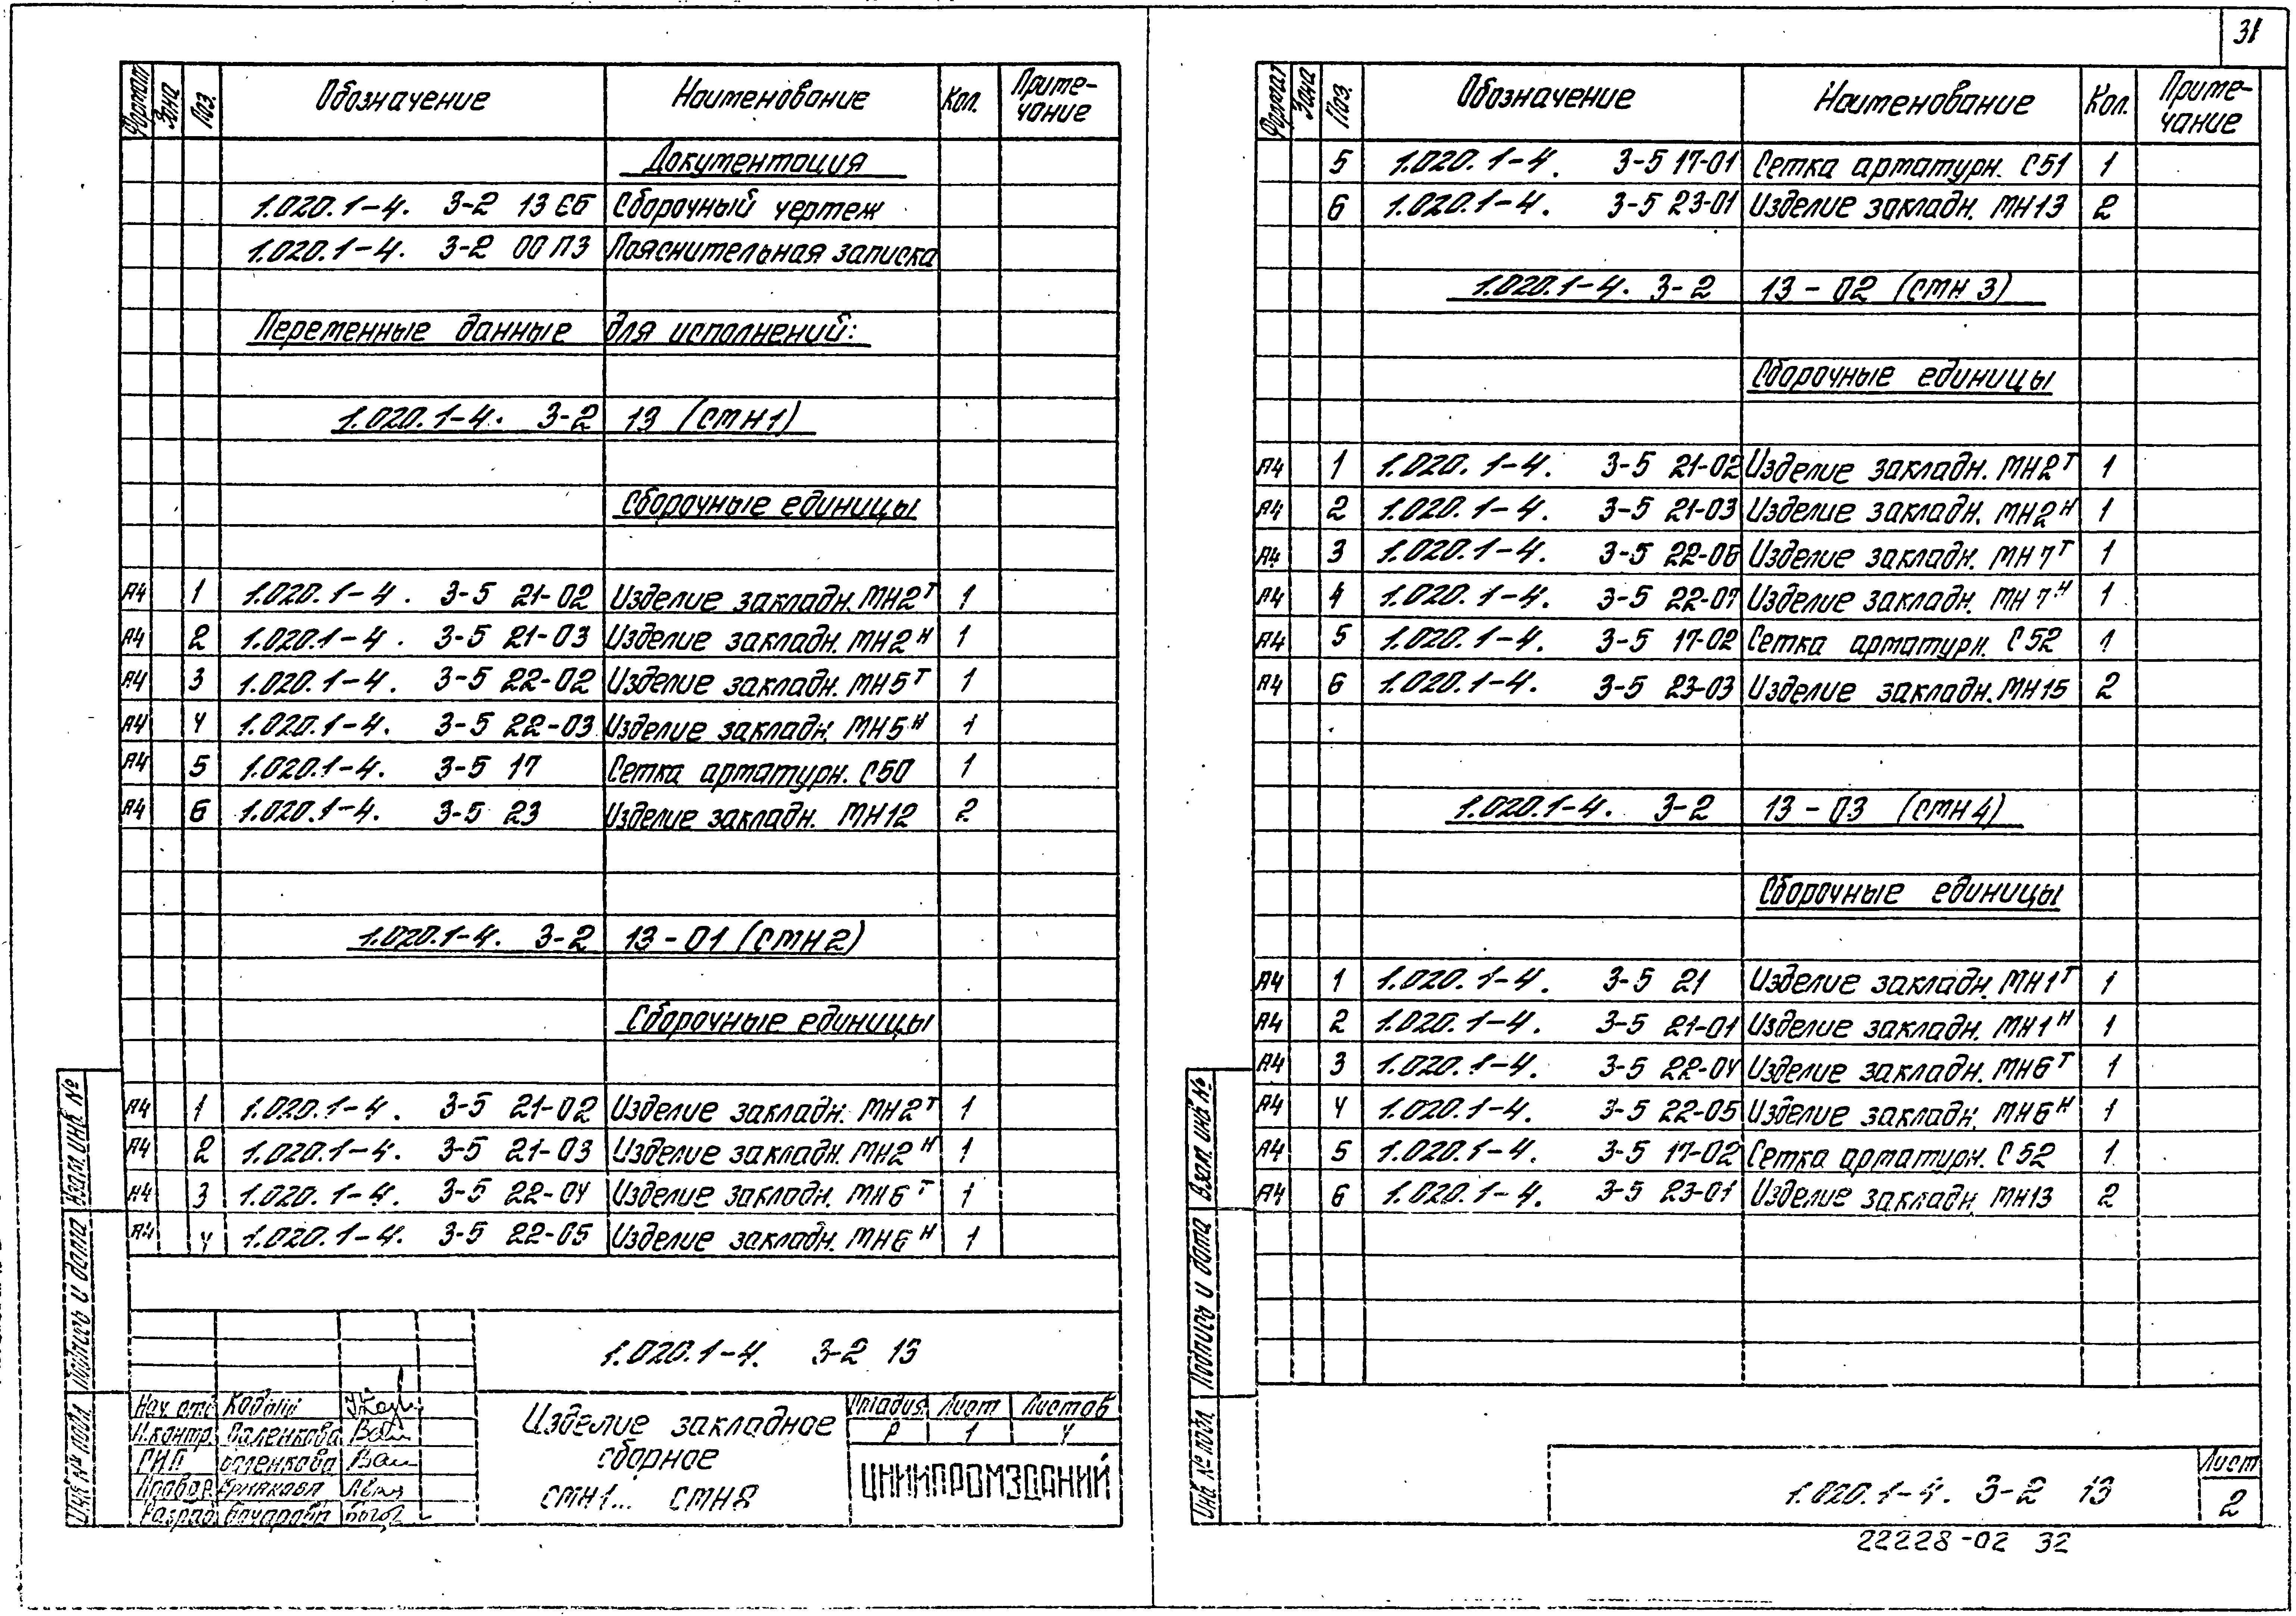 31
Формат Зона Поз. Обозначение Наименование Кол. Приме-
чание
Документация
1.020.1-4. 3-2 13 СБ Сборочный чертеж
1.020.1-4. 3-2 00 ПЗ Пояснительная записка
Переменные данные для исполнений:
1.020.1-4. 3-2 13 (СМН1)
Сборочные единицы
А4 1 1.020.1-4. 3-5 21-02 Изделие закладн. МН2Т 1
А4 2 1.020.1-4. 3-5 21-03 Изделие закладн. МН2Н 1
А4 3 1.020.1-4. 3-5 22-02 Изделие закладн. МН5Т 1
А4 4 1.020.1-4. 3-5 22-03 Изделие закладн. МН5Н 1
А4 5 1.020.1-4. 3-5 17 Сетка арматурн. С50 1
А4 6 1.020.1-4. 3-5 23 Изделие закладн. МН12 2
1.020.1-4. 3-2 13-01 (СМН2)
Сборочные единицы
А4 1 1.020.1-4. 3-5 21-02 Изделие закладн. МН2Т 1
А4 2 1.020.1-4. 3-5 21-03 Изделие закладн. МН2Н 1
А4 3 1.020.1-4. 3-5 22-04 Изделие закладн. МН6Т 1
А4 4 1.020.1-4. 3-5 22-05 Изделие закладн. МН6Н 1
1.020.1-4. 3-2 13
Нач. отд
Н.контр. Паленкова
ГИП Паленкова
Изделие закладное
сборное
СМН1... СМН8
Стадия Лист Листов
Р 1 4
ЦНИИПРОМЗДАНИЙ
Взам. инв. №
Подпись и дата
Инв. № подл.
Формат Зона Поз. Обозначение Наименование Кол. Приме-
чание
5 1.020.1-4. 3-5 17-01 Сетка арматурн. С51 1
6 1.020.1-4. 3-5 23-01 Изделие закладн. МН13 2
1.020.1-4. 3-2 13-02 (СМН3)
Сборочные единицы
А4 1 1.020.1-4. 3-5 21-02 Изделие закладн. МН2Т 1
А4 2 1.020.1-4. 3-5 21-03 Изделие закладн. МН2Н 1
А4 3 1.020.1-4. 3-5 22-06 Изделие закладн. МН7Т 1
А4 4 1.020.1-4. 3-5 22-07 Изделие закладн. МН7Н 1
А4 5 1.020.1-4. 3-5 17-02 Сетка арматурн. С52 1
А4 6 1.020.1-4. 3-5 23-03 Изделие закладн. МН15 2
1.020.1-4. 3-2 13-03 (СМН4)
Сборочные единицы
А4 1 1.020.1-4. 3-5 21 Изделие закладн. МН1Т 1
А4 2 1.020.1-4. 3-5 21-01 Изделие закладн. МН1Н 1
А4 3 1.020.1-4. 3-5 22-04 Изделие закладн. МН6Т 1
А4 4 1.020.1-4. 3-5 22-05 Изделие закладн. МН6Н 1
А4 5 1.020.1-4. 3-5 17-02 Сетка арматурн. С52 1
А4 6 1.020.1-4. 3-5 23-01 Изделие закладн МН13 2
Взам. инв. №
Подпись и дата
Инв. № подл.
1.020.1-4. 3-2 13
Лист
2
22228-02 32